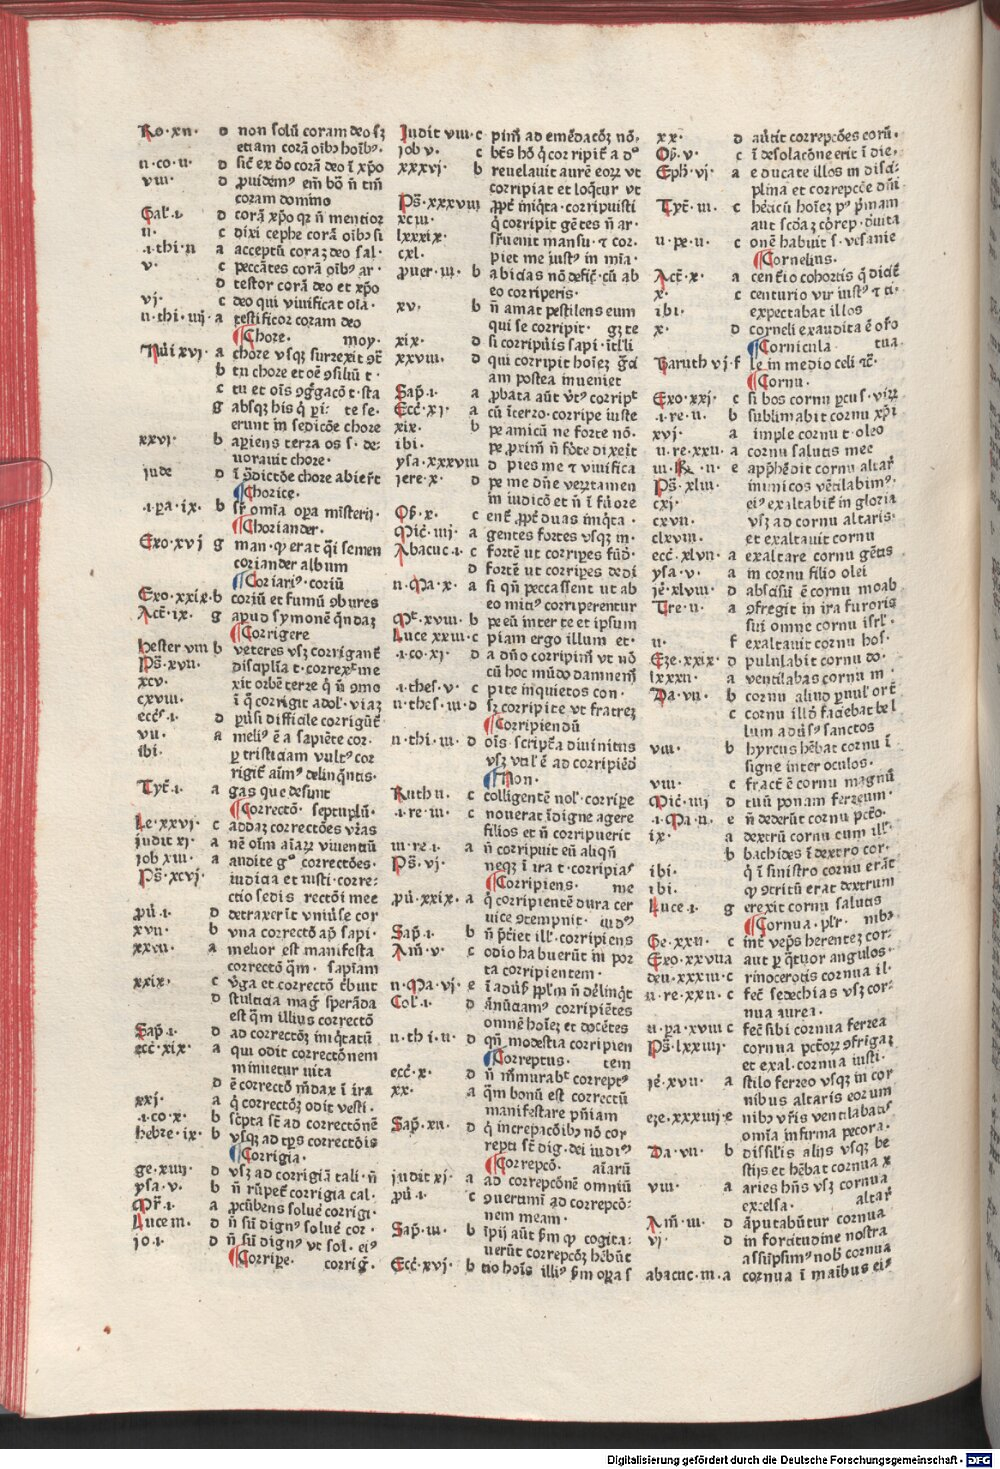 Ro·xii· d non solū coram deo sꝫ
etiam corā oībꝰ hoībꝰ·
ii·co·ii· d sic̄ ex dō corā deo ī xp̄o
viii· d ꝓuidemꝰ em̄ bō n̄ tm̄
coram domino
Gal·i· d corā xp̄o qꝛ n̄ mentior
ii· c dixi cephe corā oībꝰ si
·i·thi·ii a acceptū coraꝫ deo sal·
v· c peccātes corā oībꝰ ar·
d testor corā deo et xp̄o
vj· c deo qui viuificat oīa·
ii·thi·iiij a testificor coram deo
¶Chore· moy·
Nūi xvj· a chore vsqꝫ surrexit ꝯt̄
b tu chore et oē ꝯsiliū t·
c tu et oīs ꝯg̃gacō t·sta
g absqꝫ his q̄ ꝑi· te se·
erunt in sedicōe chore
xxvj· b aꝑiens terra os s·de·
uorauit chore·
jude d ī ꝯdictōe chore abiert̄
¶Chorice·
·i·pa·ix· b sr̄ omīa oꝑa mīsterij·
¶Choriander·
Exo·xvj g man·ꝙ erat q̄i semen
coriander album
¶Coriariꝰ·coriū
Exo·xxix·b coriū et fumū ꝯbures
Act̄·ix· g apud symonē q̄ndaꝫ
¶Corrigere
hester viii b veteres vsꝫ corrigant̄
Ps̄·xvii· disciplīa t·correxᵗ me
xcv· xit orbē terre q̄ n̄ ꝯmo
cxviii· ī q̄ corrigit adolꝰ·viaꝫ
ecc̄s·i· d ꝑūsi difficile corrigūt̄
vii· a meliꝰ ē a sapiēte cor·
ibi· ꝑ tristiciam vultꝰ cor
rigit̄ aīmꝰ delinq̄ntis·
Tyt̄·i· a gas que desunt
¶Correctō· septuplū·
Le·xxvj· c addaꝫ correctōes vr̄as
judit xj· a nē oīm aīaꝝ viuentiū
job xiii· a audite gᵒ correctōes·
Ps̄·xcvj· iudicia et iusti·corre-
ctio sedis rectōi mee
pū·i· d detraxerīt vniūse cor
xvii· b vna correctō ap̄ sapi·
xxvii· a melior est manifesta
correctō q̄m· sapīam
xxix· c v̄ga et correctō t̄buit
d stulticia mag̃ sperāda
est q̄m illius correctō
Sap̄·i· d ad correctōꝫ inq̄tatū
ecc̄·xix· a qui odit correctōnem
minuetur uita
d ē correctō m̄dax ī ira
xxj· a q̄ correctōꝫ odit vesti·
·i·co·x· b sc̄pta st̄ ad correctōnē
hebre·ix· b vsqꝫ ad tp̄s correctōis
¶Corrigia·
ge·xiiij· d vsꝫ ad corrigiā tali·n̄
ysa·v· b n̄ rūpet̄ corrigia cal·
Mr̄·i· a ꝓcūbens soluē corrigi·
Luce iii· d n̄ sū dignꝰ soluē cor·
jo·i· d n̄ sū dignꝰ vt sol·eiꝰ
¶Corripe· corrig̃·
Judit viii·c pim̄ ad emēdacōꝫ nō·
job v· c bt̄s hō q̄ corripit̄ a dᵒ
xxxvj· b reuelauit aurē eoꝝ vt
corripiat et loq̄tur vt
Ps̄·xxxviii ꝓpt̄ iniq̄ta·corripuisti
xciii· q̄ corripit gētes n̄ ar·
lxxxix· sr̄uenit mansu·⁊ cor·
cxl· piet me iustꝰ in mīa·
ꝓuer·iii· b abicias nō defic̄·cū ab
eo corriperis·
xv· b n̄ amat pestilens eum
qui se corripit· gꝛ te
xix· d si corripūis sapi·ītl̄li
xxviii· d qui corripit hoīeꝫ gc̄ā
am postea inueniet
Sap̄·i· a ꝓbata aūt v̄tꝰ corript
Ecc̄·xj· a cū īterro·corripe iuste
xix· b pe amicū ne forte nō·
ibi· pe ꝓximū n̄ fōte dixeit
ysa·xxxviii d pies me ⁊ viuifica
jere·x· d pe me dn̄e ver̄tamen
in iudicō et n̄ ī fu̇ore
Os̄·x· c ent̄ ꝓpt̄ duas iniq̄ta·
Mic̄·iiij· a gentes fortes vsqꝫ in·
Abacuc·i· c fortē ut corriꝑes fūd·
d fortē ut corriꝑes dedi
ii·Ma·x· a si qn̄ peccassent ut ab
eo mitiꝰ corriperentur
Mᵗ·xviii· b pe eū inter te et ipsum
Luce xxiii·c piam ergo illum et·
·i·co·xj· d a dn̄o corripim̄ vt nō
cū hoc mūdo damnem̄
·i·thes·v· c pite inquietos con·
ii·thes·iii·d sꝫ corripite vt fratreꝫ
¶Corripiendū
ii·thi·iii· d oīs·scripta diuinitus
vsꝫ vtil̄ ē ad corripiēd
¶Non·
Ruth ii· c colligentē nolꝰ·corripe
·i·re·iii· c nouerat īdigne agere
filios et n̄ corripuerit
iii·re·i· a n̄ corripuit eū aliqn̄
Ps̄·vj· neqꝫ ī ira t·corripiaꝰ
¶Corripiens· me
pū·xxix· a q̄ corripientē dura cer
uice ꝯtempnit· iudꝰ
Sap̄·i· b n̄ p̄t̄iet ill̄·corripiens
Am̄·v· c odio habuerūt in por
ta corripientem·
ii·Ma·vj· e ī adūs̄ ppl̄m n̄ dēlinq̄t
Col̄·i· d ānūciamꝰ corripiētes
omnē hoīeꝫ et docētes
ii·thi·ii· d qn̄ modestia corripien
¶Correptus· tem
ecc̄·x· d n̄ m̄murabᵗ correptꝰ
xx· a q̄m bonū est correctū
manifestare pn̄iam
Sap̄·xii· d q̄ increpacōibꝰ nō cor
repti st̄ dig·dei iudiꝰ
¶Correpcō· aīarū
judit xj· a ad correpcōnē omniū
pū·i· c ꝯuertimī ad correpcō-
nem meam·
Sap̄·iii· b īpij aūt s̄m ꝙ cogita-
uerūt correpcōꝫ hēbūt
Ecc̄·xvj· b tio hoīs illiꝰ s̄m oꝑa s
xx· d aūtit correpcōes eorū·
Os̄·v· c ī desolacōne erit ī die·
Eph̄·vj· a educate illos in disci-
plina et correpcōe dn̄i
Tyt̄·iii· c hēticū hoīeꝫ pꝰ p̄mam
aut scd̄aꝫ cōrep·dīuita
ii·pe·ii· c onē habuit s·vesanie
¶Cornelius·
Act̄·x· a cent̄io cohortis q̄ dicit̄
x· c centurio vir iustꝰ ⁊ ti·
ibi· expectabat illos
x· d corneli exaudita ē or̄o
¶Cornicula tua
Baruth vj·f le in medio celi ⁊c̄·
¶Cornu·
Exo·xxj· c si bos cornu ꝑcuꝰ·virꝫ
·i·re·ii· b sublimabit cornu xp̄i
xvj· a imple cornu t·oleo
ii·re·xxii·a cornu salutis mee
iii·R·ii· e app̄hēdit cornu altar̄
Ps̄·xliii· inimicos vētilabimꝰ·
cxj· eiꝰ exaltabit̄ in gloria
cxvii· vsꝫ ad cornu altaris·
clxviii· et exaltauit cornu
ecc̄·xlvii· a exaltare cornu gētis
ysa·v· a in cornu filio olei
jē·xlviii· d abscīsū ē cornu moab
Tre·ii· a ꝯfregit in ira furoris
sui omne cornu isrl̄·
ii· f exaltauit cornu hos·
Eze·xxix· d pululabit cornu do·
lxxxii· a ventilabas cornu m
Da·vii· b cornu aliud ꝑuulꝰ ort̄
c cornu illd̄ faciebat bel
lum adūsꝰ sanctos
viii· b hyrcus hēbat cornu ī
signe inter oculos·
viii· c fract̄ ē cornu magnū
Mic̄·iiij d tuū ponam ferreum·
·i·Ma·ii· e n̄ dederūt cornu pctō·
ix· a dextrū cornu cum ill̄·
b bachides ī dextro cor·
ibi· q̄ ī sinistro cornu erāt
ibi· ꝙ ꝯtritū erat dextrum
Luce·i· g erexit cornu salutis
¶Cornua·plr̄· nibꝰ
Ge·xxii· c int̄ vep̄s herenteꝫ cor·
Exo·xxvii a aut ꝑ q̄tuor angulos·
deu·xxxiii·c rinocerotis cornua il·
ii·re·xxii·c fec̄ sedechias vsꝫ cor-
nua aurea·
ii·pa·xviii c fec̄ sibi cornua ferrea
Ps̄·lxxiiij· cornua pctōꝝ ꝯfrigaꝫ
et exal·cornua iusti·
jē·xvii· a stilo ferreo vsqꝫ in cor
nibus altaris eorum
eze·xxxiiij·e nibꝰ vr̄is ventilabatꝰ
omīa infirma pecora·
Da·vii· b dissilis alijs vsqꝫ be
stijs et hēbat cornua x
viii· a aries hn̄s vsꝫ cornua
excelsa· altar̄
Am̄·iii· d āputabūtur cornua
vj· d in fortitudine nostra
assūpsimꝰ nob̄ cornua
abacuc·iii·a cornua ī maībus eiꝰ
Digitalisierung gefördert durch die Deutsche Forschungsgemeinschaft - DFG